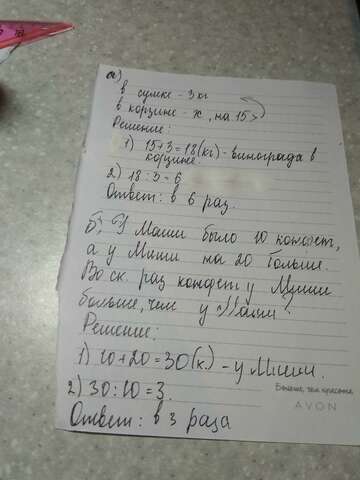 а)
в сумке - 3 кг
в корзине - x, на 15 >
Решение:
1) 15+3=18(кг) - винограда в
корзине.
2) 18:3=6
Ответ: в 6 раз.
б) У Маши было 10 конфет,
а у Миши на 20 больше.
Во ск. раз конфет у Миши
больше, чем у Маши?
Решение:
1) 10+20=30(к.) - у Миши.
2) 30:10=3.
Ответ: в 3 раза
Больше, чем красота
AVON